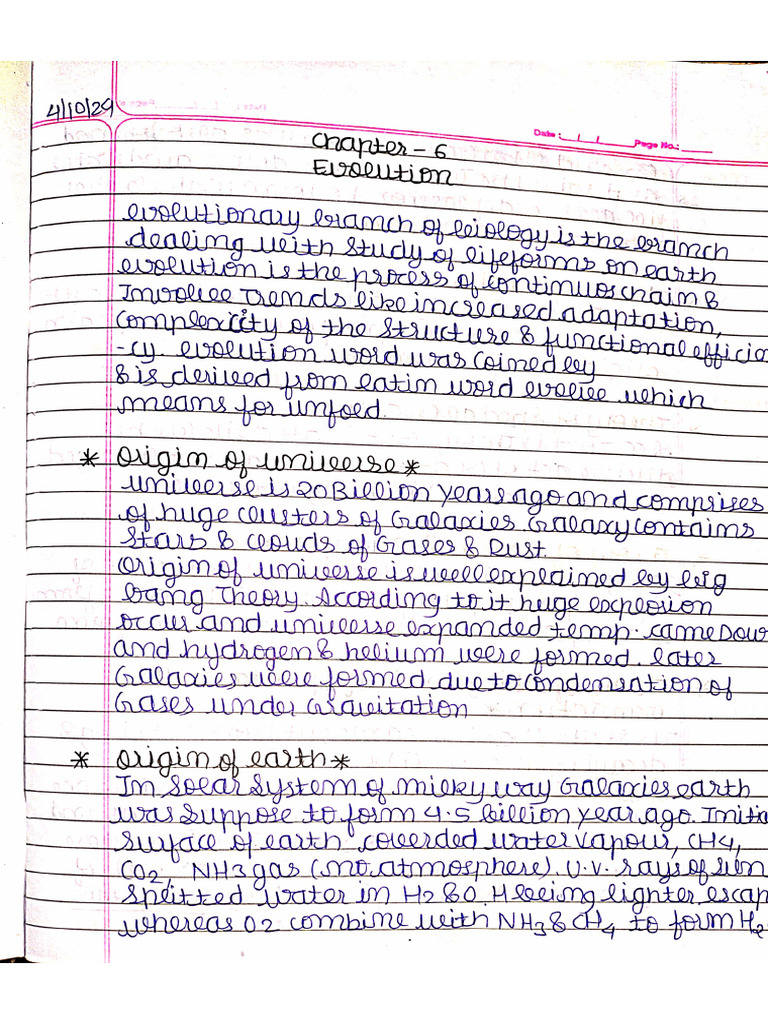 4/10/24
Date : / / Page No.:
Chapter - 6
Evolution
evolutionary branch of biology is the branch
dealing with study of lifeforms on earth
evolution is the process of continuos chain &
Involve Trends like increased adaptation,
complexity of the structure & functional efficien
-cy. evolution word was coined by
& is derived from latin word evolve which
means for unfold.
* origin of universe *
universe is 20 Billion years ago and comprises
of huge clusters of Galaxies. Galaxy contains
stars & clouds of Gases & Dust
origin of universe is well explained by big
bang Theory. According to it huge explosion
occur and universe expanded temp. came Down
and hydrogen & helium were formed. later
Galaxies were formed due to condensation of
Gases under Gravitation
* origin of earth *
In solar system of milky way Galaxies earth
was suppose to form 4.5 billion year ago. Initia
surface of earth coverded water vapour, CH4,
CO2, NH3 gas (no. atmosphere). U.V. rays of sun
splitted water in H2 & O. H being lighter escap
whereas O2 combine with NH3 & CH4 to form H2